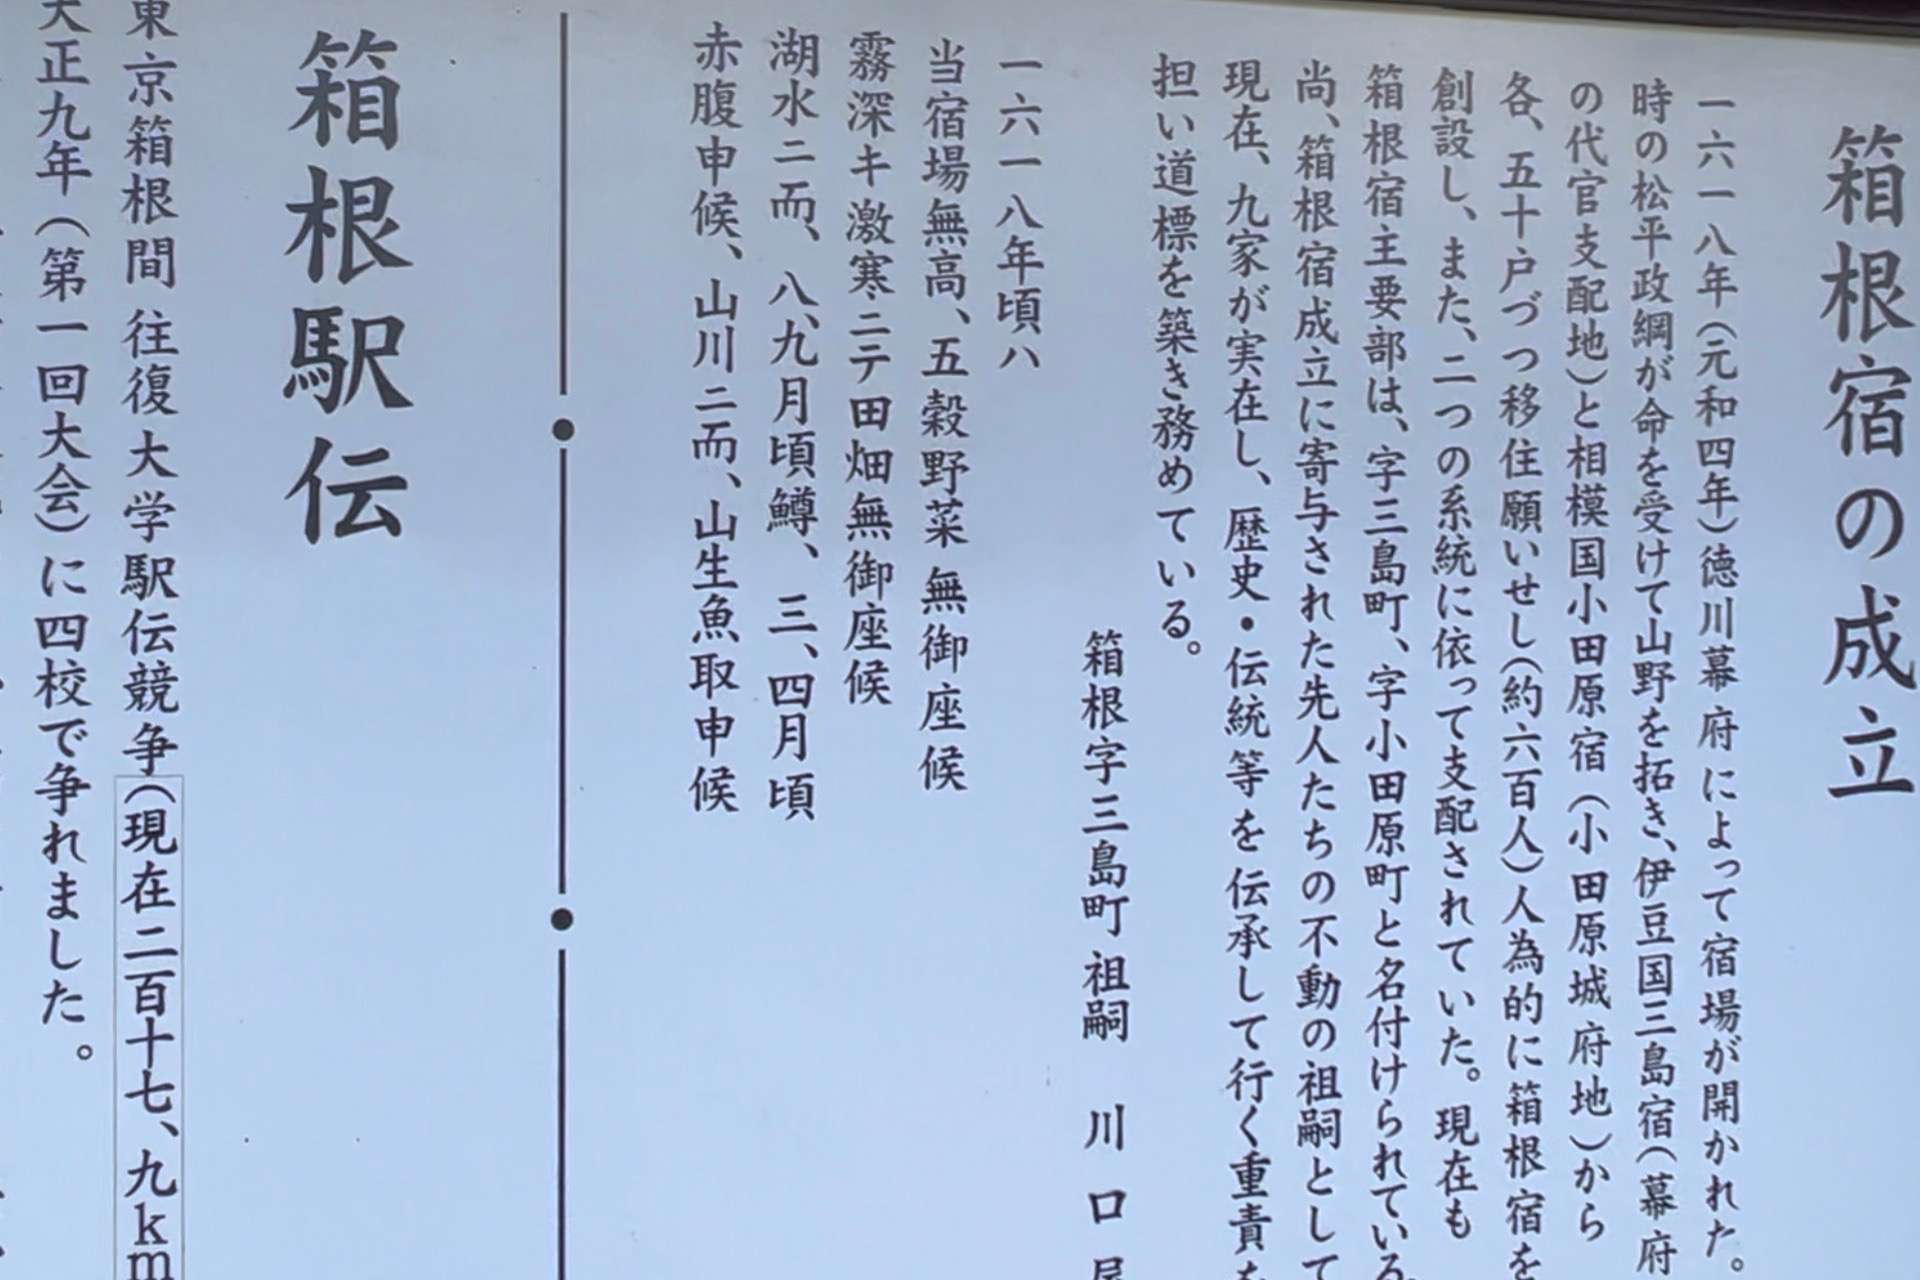 箱根宿の成立
一六一八年（元和四年）徳川幕府によって宿場が開かれた。
時の松平政綱が命を受けて山野を拓き、伊豆国三島宿（幕府
の代官支配地）と相模国小田原宿（小田原城府地）から
各、五十戸づつ移住願いせし（約六百人）人為的に箱根宿を
創設し、また、二つの系統に依って支配されていた。現在も
箱根宿主要部は、字三島町、字小田原町と名付けられている。
尚、箱根宿成立に寄与された先人たちの不動の祖嗣として
現在、九家が実在し、歴史・伝統等を伝承して行く重責を
担い道標を築き務めている。
箱根字三島町祖嗣　川口屋
一六一八年頃ハ
当宿場無高、五穀野菜無御座候
霧深キ激寒ニテ田畑無御座候
湖水ニ而、八、九月頃鱒、三、四月頃
赤腹申候、山川ニ而、山生魚取申候
箱根駅伝
東京箱根間往復大学駅伝競争（現在二百十七、九km
大正九年（第一回大会）に四校で争れました。